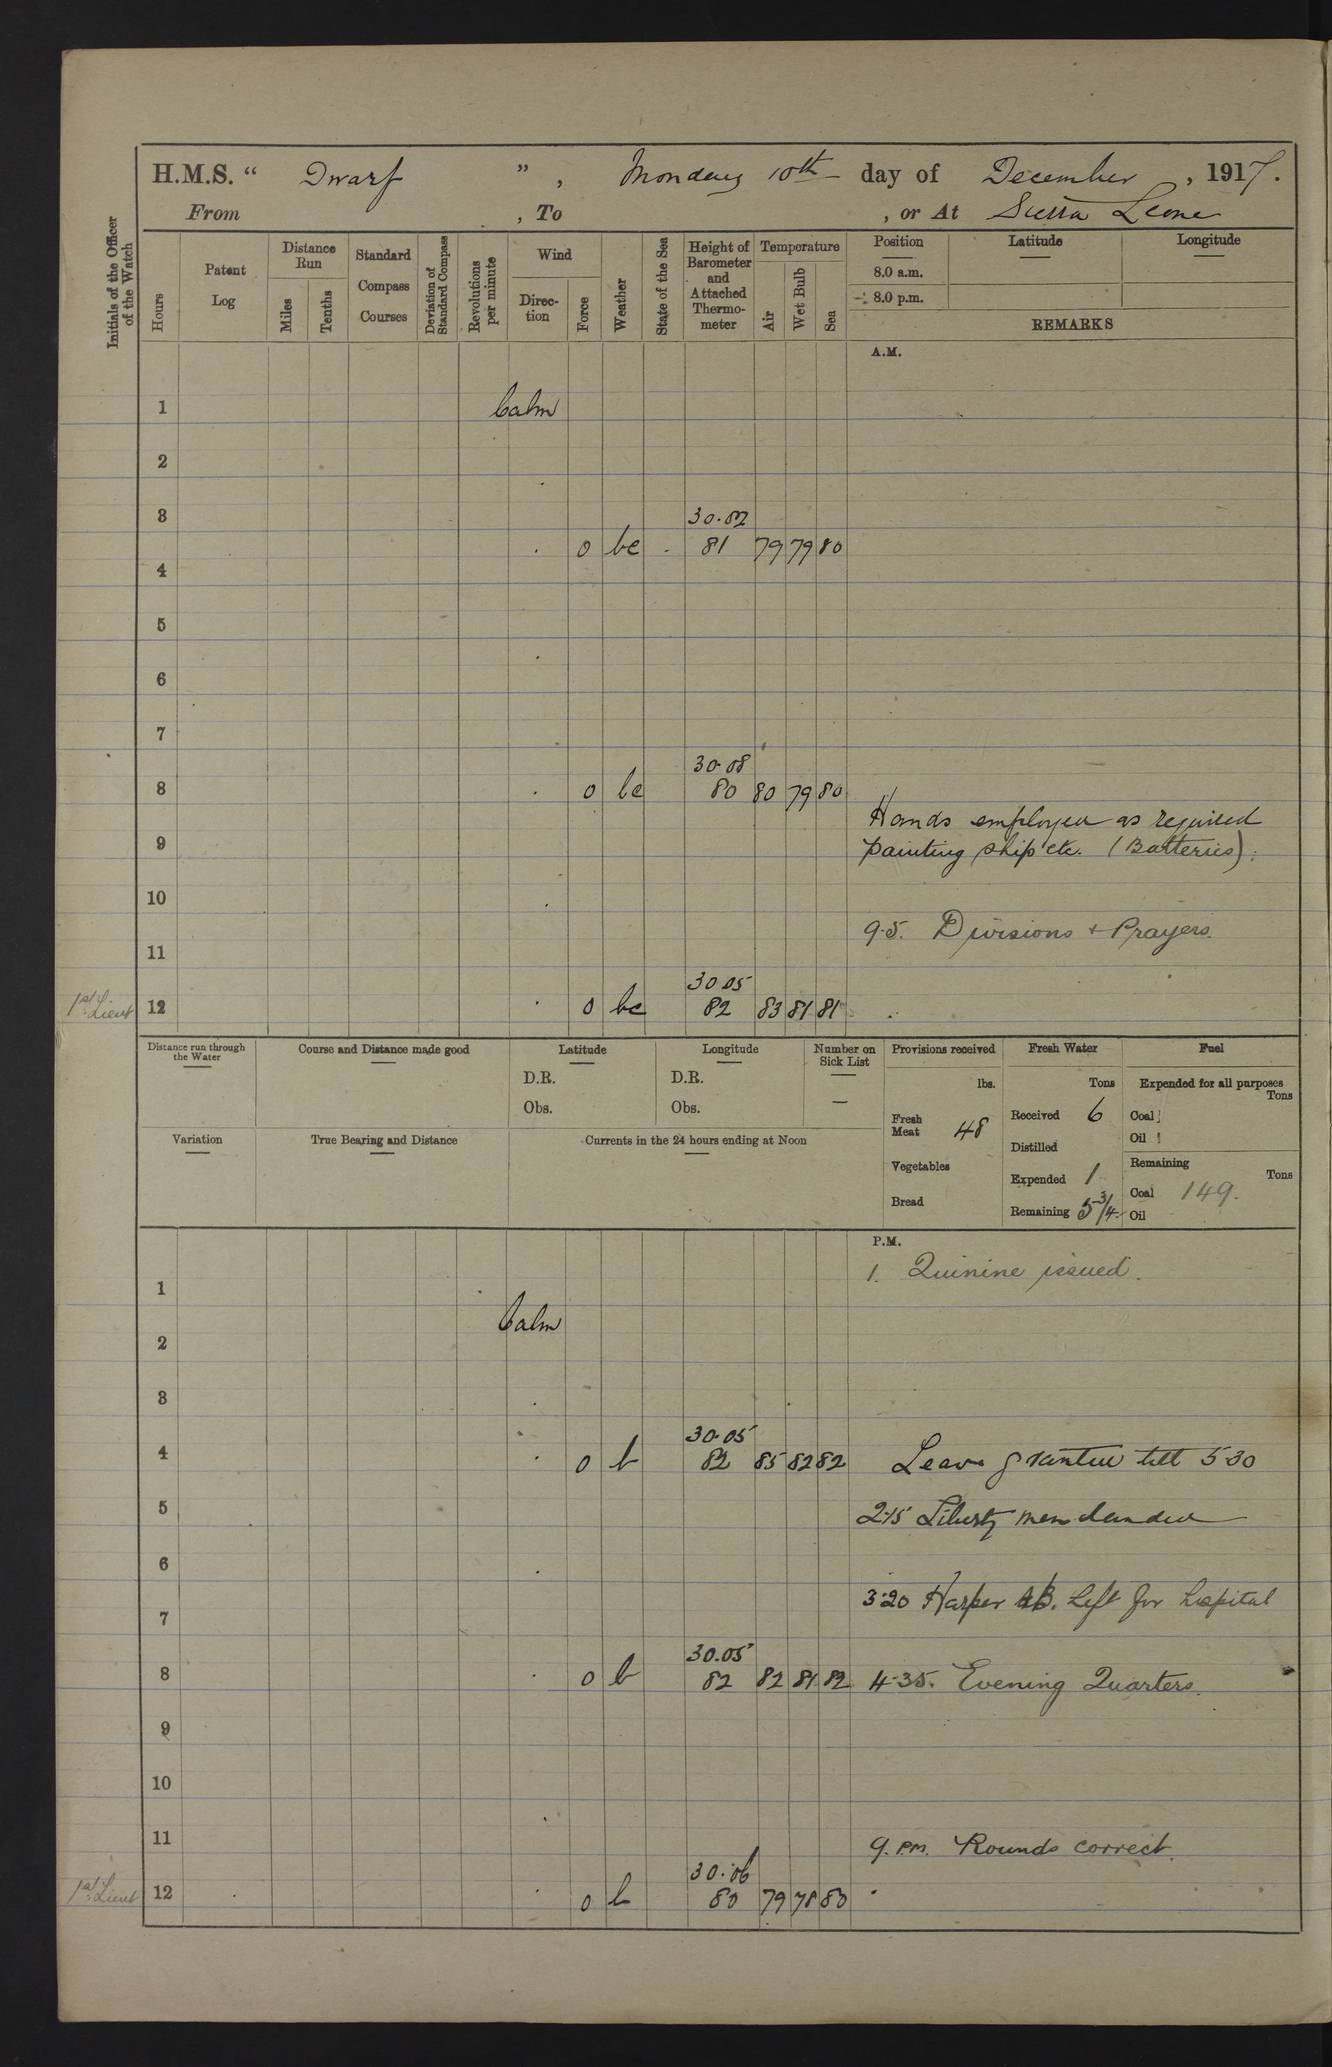 H.M.S. “ Dwarf ” , Monday 10th day of December , 1917.
From , To , or At Sierra Leone
Initials of the Officer of the Watch
Hours
Patent Log
Distance Run
Miles
Tenths
Standard Compass Courses
Deviation of Standard Compass
Revolutions per minute
Wind
Direction
Force
Weather
State of the Sea
Height of Barometer and Attached Thermometer
Temperature
Air
Wet Bulb
Sea
Position Latitude Longitude
8.0 a.m.
8.0 p.m.
REMARKS
A.M.
1 Calm
2
3 30.02
4 0 bc 81 79 79 80
5
6
7
30.08
8 0 bc 80 80 79 80
Hands employed as required
9 painting ship etc. (Batteries).
10
9.5. Divisions + Prayers.
11
30.05
1st Lieut 12 0 bc 82 83 81 81
Distance run through the Water
Course and Distance made good
Latitude
D.R.
Obs.
Longitude
D.R.
Obs.
Number on Sick List
—
Provisions received
lbs.
Fresh Meat 48
Vegetables
Bread
Fresh Water
Tons
Received 6
Distilled
Expended 1
Remaining 5 3/4
Fuel
Expended for all purposes
Tons
Coal
Oil
Remaining
Tons
Coal 149.
Oil
Variation
True Bearing and Distance
Currents in the 24 hours ending at Noon
P.M.
1. Quinine issued.
1
Calm
2
3
30.05
4 0 b 82 85 82 82 Leave granted till 5.30
5 2.15 Liberty men landed
6
3.20 Harper AB. left for hospital
7
30.05
8 0 b 82 82 81 82 4.35. Evening Quarters.
9
10
11 9. P.M. Rounds correct.
30.06
1st Lieut 12 0 b 80 79 78 80